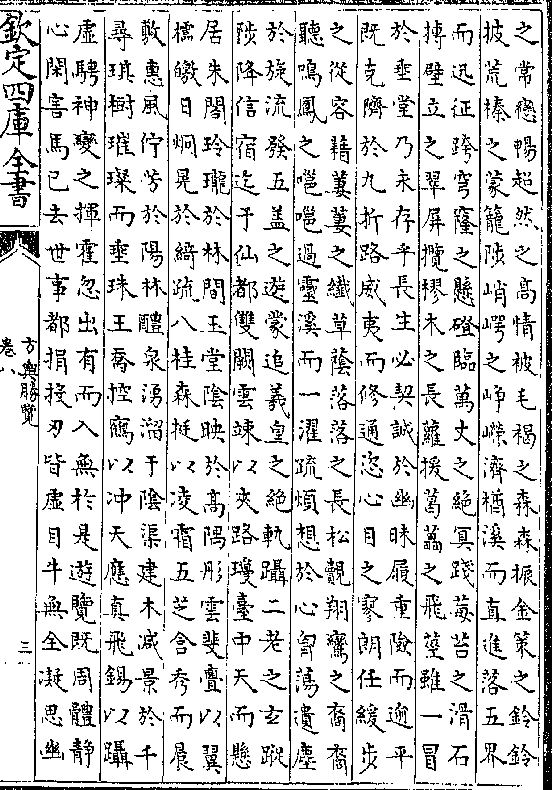 之常戀暢超然之高情被毛褐之森森振金策之鈴鈴
披荒榛之蒙籠陟峭崿之崢嶸濟楢溪而直進落五界
而迅征跨穹窿之懸磴臨萬丈之絶冥踐莓苔之滑石
搏壁立之翠屏攬樛木之長蘿援葛藟之飛莖雖一冒
於垂堂乃永存乎長生必契誠於幽昧履重險而逾平
既克隮於九折路威夷而修通恣心目之寥朗任緩步
之從容藉萋萋之纎草蔭落落之長松覿翔鸞之裔裔
聽鳴鳳之嗈嗈過靈溪而一濯疏煩想於心胷蕩遺塵
於旋流發五盖之遊蒙追羲皇之絶軌躡二老之玄蹤
陟降信宿迄于仙都雙闕雲竦以夾路瓊臺中天而懸
居朱閣玲瓏於林間玉堂陰映於高隅彤雲斐亹以翼
櫺皦日烱晃於綺疏八桂森挺以凌霜五芝含秀而晨
敷惠風佇芳於陽林醴泉湧溜于陰渠建木滅景於千
尋琪樹璀璨而垂珠王喬控鶴以冲天應真飛錫以躡
虛騁神變之揮霍忽出有而入無於是遊覽既周體靜
心閑害馬已去世事都捐投刃皆虛目牛無全凝思幽
欽定四庫全書
方輿勝覽
卷八
三